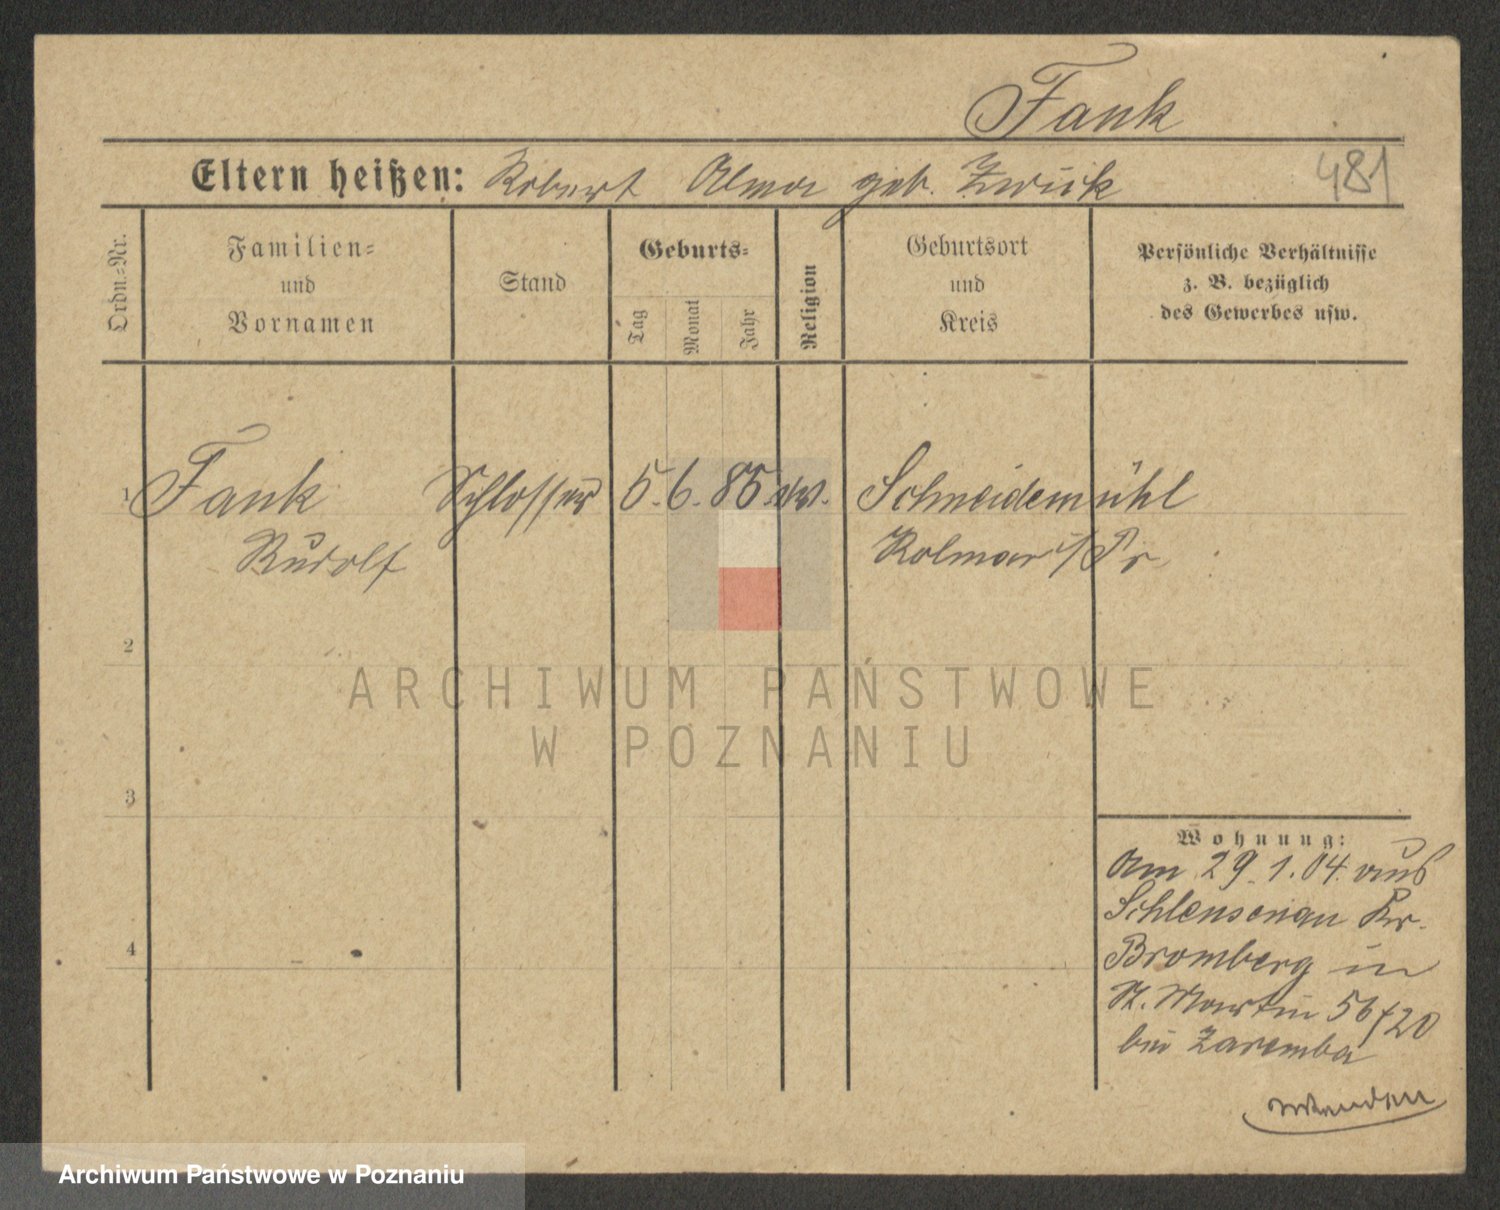 Fank
Eltern heißen: Robert Alma geb. Zwick
481
Ordn.=Nr.
Familien=
und
Vornamen
Stand
Geburts=
Tag
Monat
Jahr
Religion
Geburtsort
und
Kreis
Persönliche Verhältnisse
z. B. bezüglich
des Gewerbes usw.
1 Fank Schlosser 5. 6. 85. ev. Schneidemühl
Rudolf Kolmar i/Pr
2
ARCHIWUM PAŃSTWOWE
W POZNANIU
3
Wohnung:
Am 29.1.04. aus
Schleusenau Kr.
4
Bromberg in
St. Martin 56/20
bei Zaremba
wenden
Archiwum Państwowe w Poznaniu